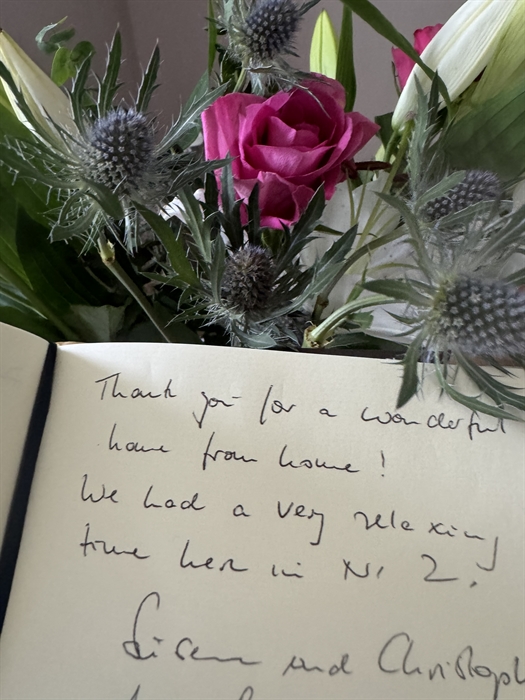 Thank you for a wonderful
home from home!
We had a very relaxing
time here in Nr 2.
and Christoph